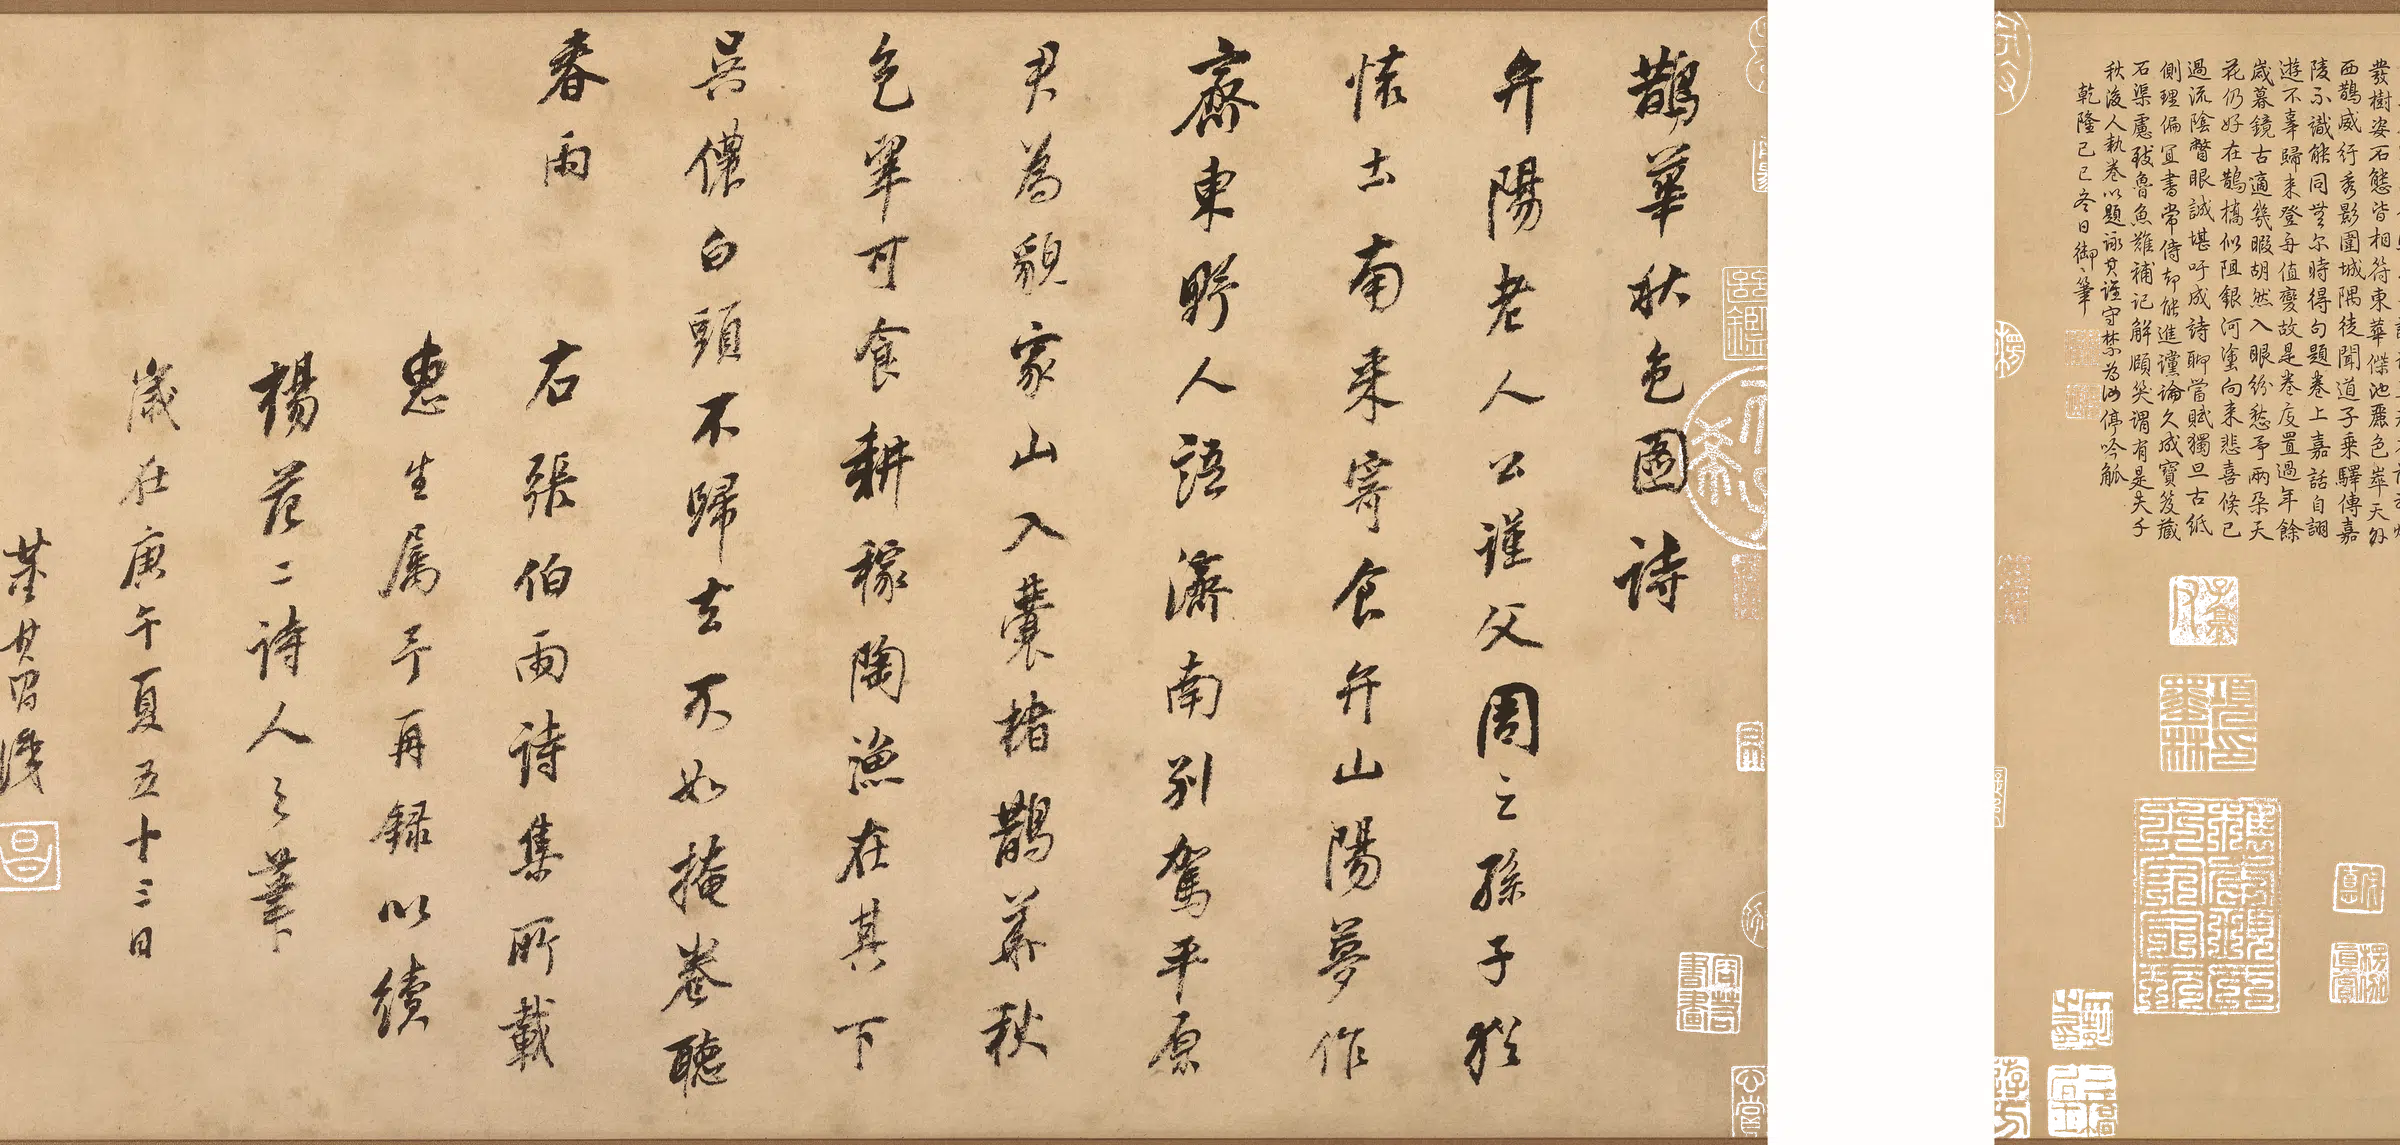 發樹姿石態皆相符東華傑池麗色崒天外
西鵲威行秀影圍城隅徒聞道子乘驛傳嘉
陵不識能同無尔時得句題卷上嘉話自詡
遊不辜歸來登舟值變故是卷庋置過年餘
歲暮鏡古適幾暇胡然入眼紛愁予兩朶天
花仍好在鵲橋似阻銀河塗向來悲喜倏已
過流陰瞥眼誠堪吁成詩聊當賦獨旦古紙
側理偏宜書常侍却能進讜論久成寶笈藏
石渠慮我魯魚難補記解頤笑謂有是夫千
秋後人執卷以題詠其謹守禁為汝停吟觚
乾隆己巳冬日御筆
鵲華秋色圖詩
弁陽老人公謹父周之孫子猶
懷土南來寄食弁山陽夢作
齋東野人語濟南別駕平原
君為貌家山入囊楮鵲華秋
色翠可食耕稼陶漁在其下
吳儂白頭不歸去不如掩卷聽
春雨
右張伯雨詩集所載
惠生屬予再錄以續
楊范二詩人之筆
歲在庚午夏五十三日
董其昌識